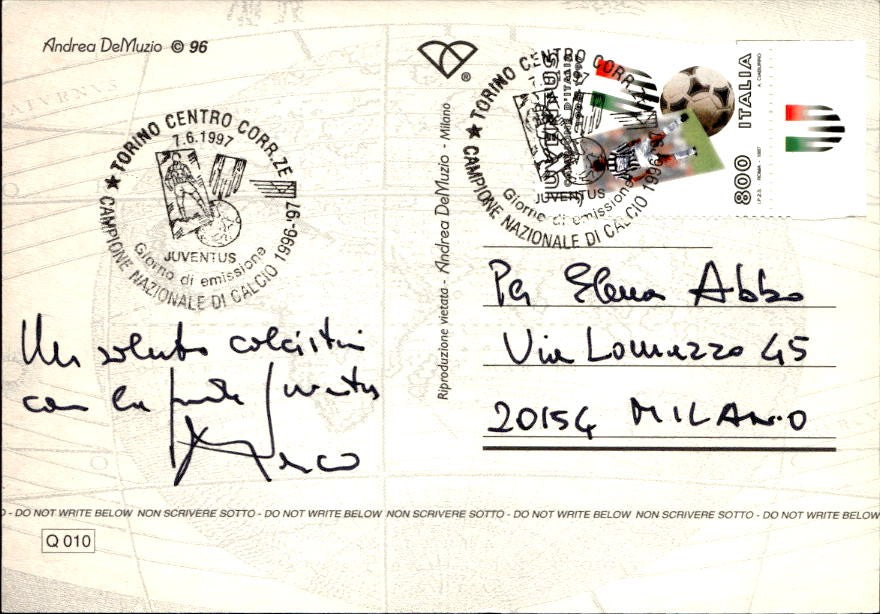 Andrea DeMuzio © 96
®
TORINO CENTRO CORR.ZE
7.6.1997
JUVENTUS
Giorno di emissione
CAMPIONE NAZIONALE DI CALCIO 1996-'97
TORINO CENTRO CORR.ZE
JUVENTUS
JUVENTUS
Giorno di emissione
CAMPIONE NAZIONALE DI CALCIO 1996-'97
800 ITALIA
I.P.Z.S. ROMA - 1997
Riproduzione vietata - Andrea DeMuzio - Milano
Un saluto calcistico
con la
Per Elena Abbo
Via Lomazzo 45
20154 MILANO
DO NOT WRITE BELOW NON SCRIVERE SOTTO - DO NOT WRITE BELOW NON SCRIVERE SOTTO - DO NOT WRITE BELOW NON SCRIVERE SOTTO - DO NOT WRITE BELOW
Q 010